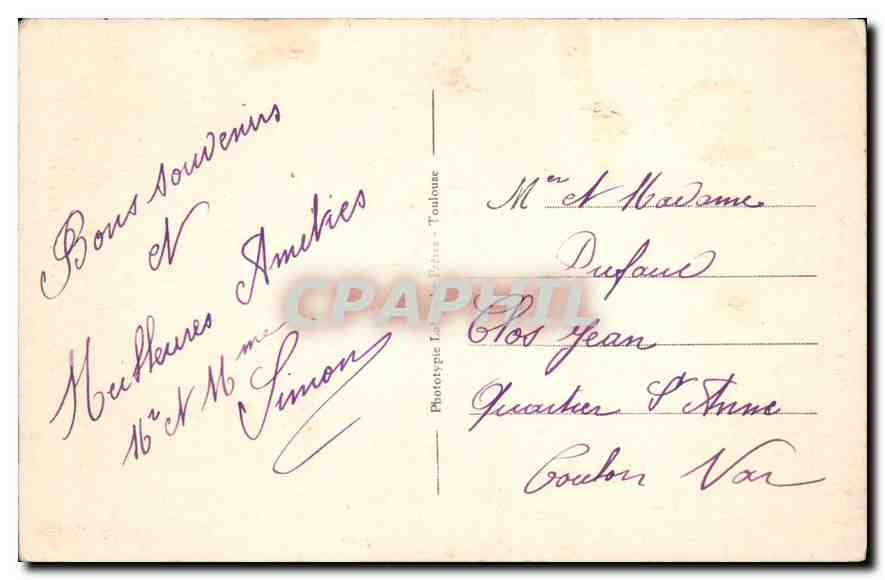 Bons souvenirs
et
Meilleures Amitiés
Mr et Mme
Simon
Phototypie Frères - Toulouse
Mer et Madame
Dufaut
Clos Jean
Quartier St Anne
Toulon Var
CPAPHIL